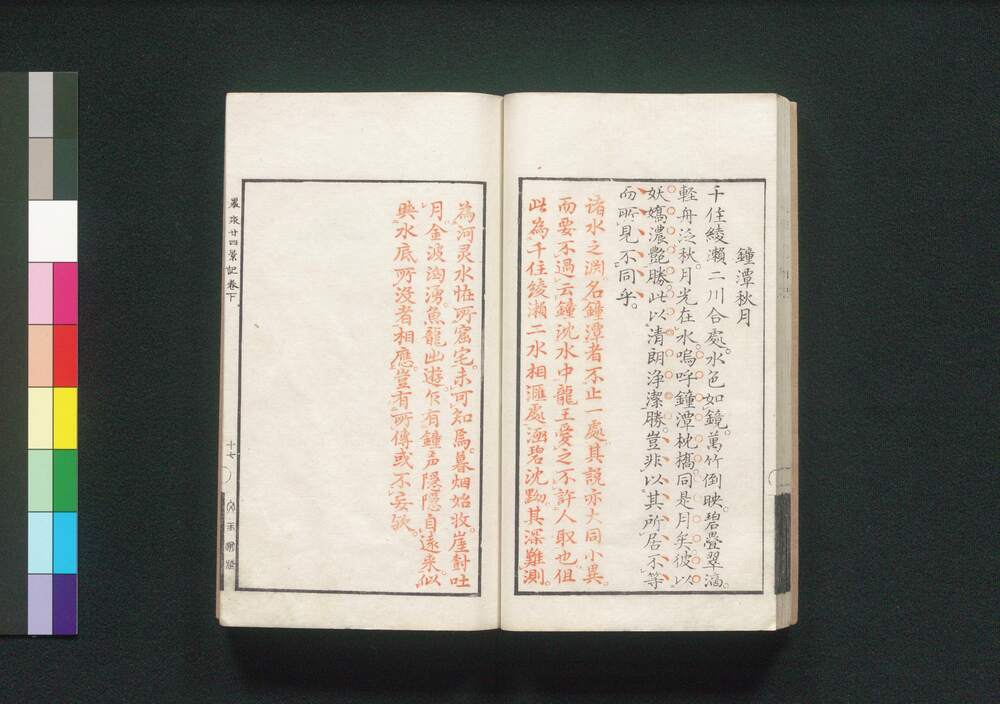 鐘潭秋月
千住綾瀬二川合處。水色如鏡。萬竹倒映。碧疊翠滴。
軽舟泛秋。月光在水。嗚呼鐘潭枕橋同是月矣。彼以
妖嬌濃艶勝。此以清朗浄潔勝。豈非以其所居不等
而所見不同乎。
諸水之淵。名鐘潭者不止一處。其説亦大同小異。
而要不過云鐘沈水中龍王愛之不許人取也但
此為千住綾瀬二水相滙處。涵碧沈黝。其深難測。
為河灵水恠所窟宅。未可知焉。暮烟始收。崖樹吐
月。金波洶湧。魚龍出遊。乍有鐘声隠隠自遠来。似
與水底所没者相應。豈有所傳或不妄欤。
廿四景記巻下
十七